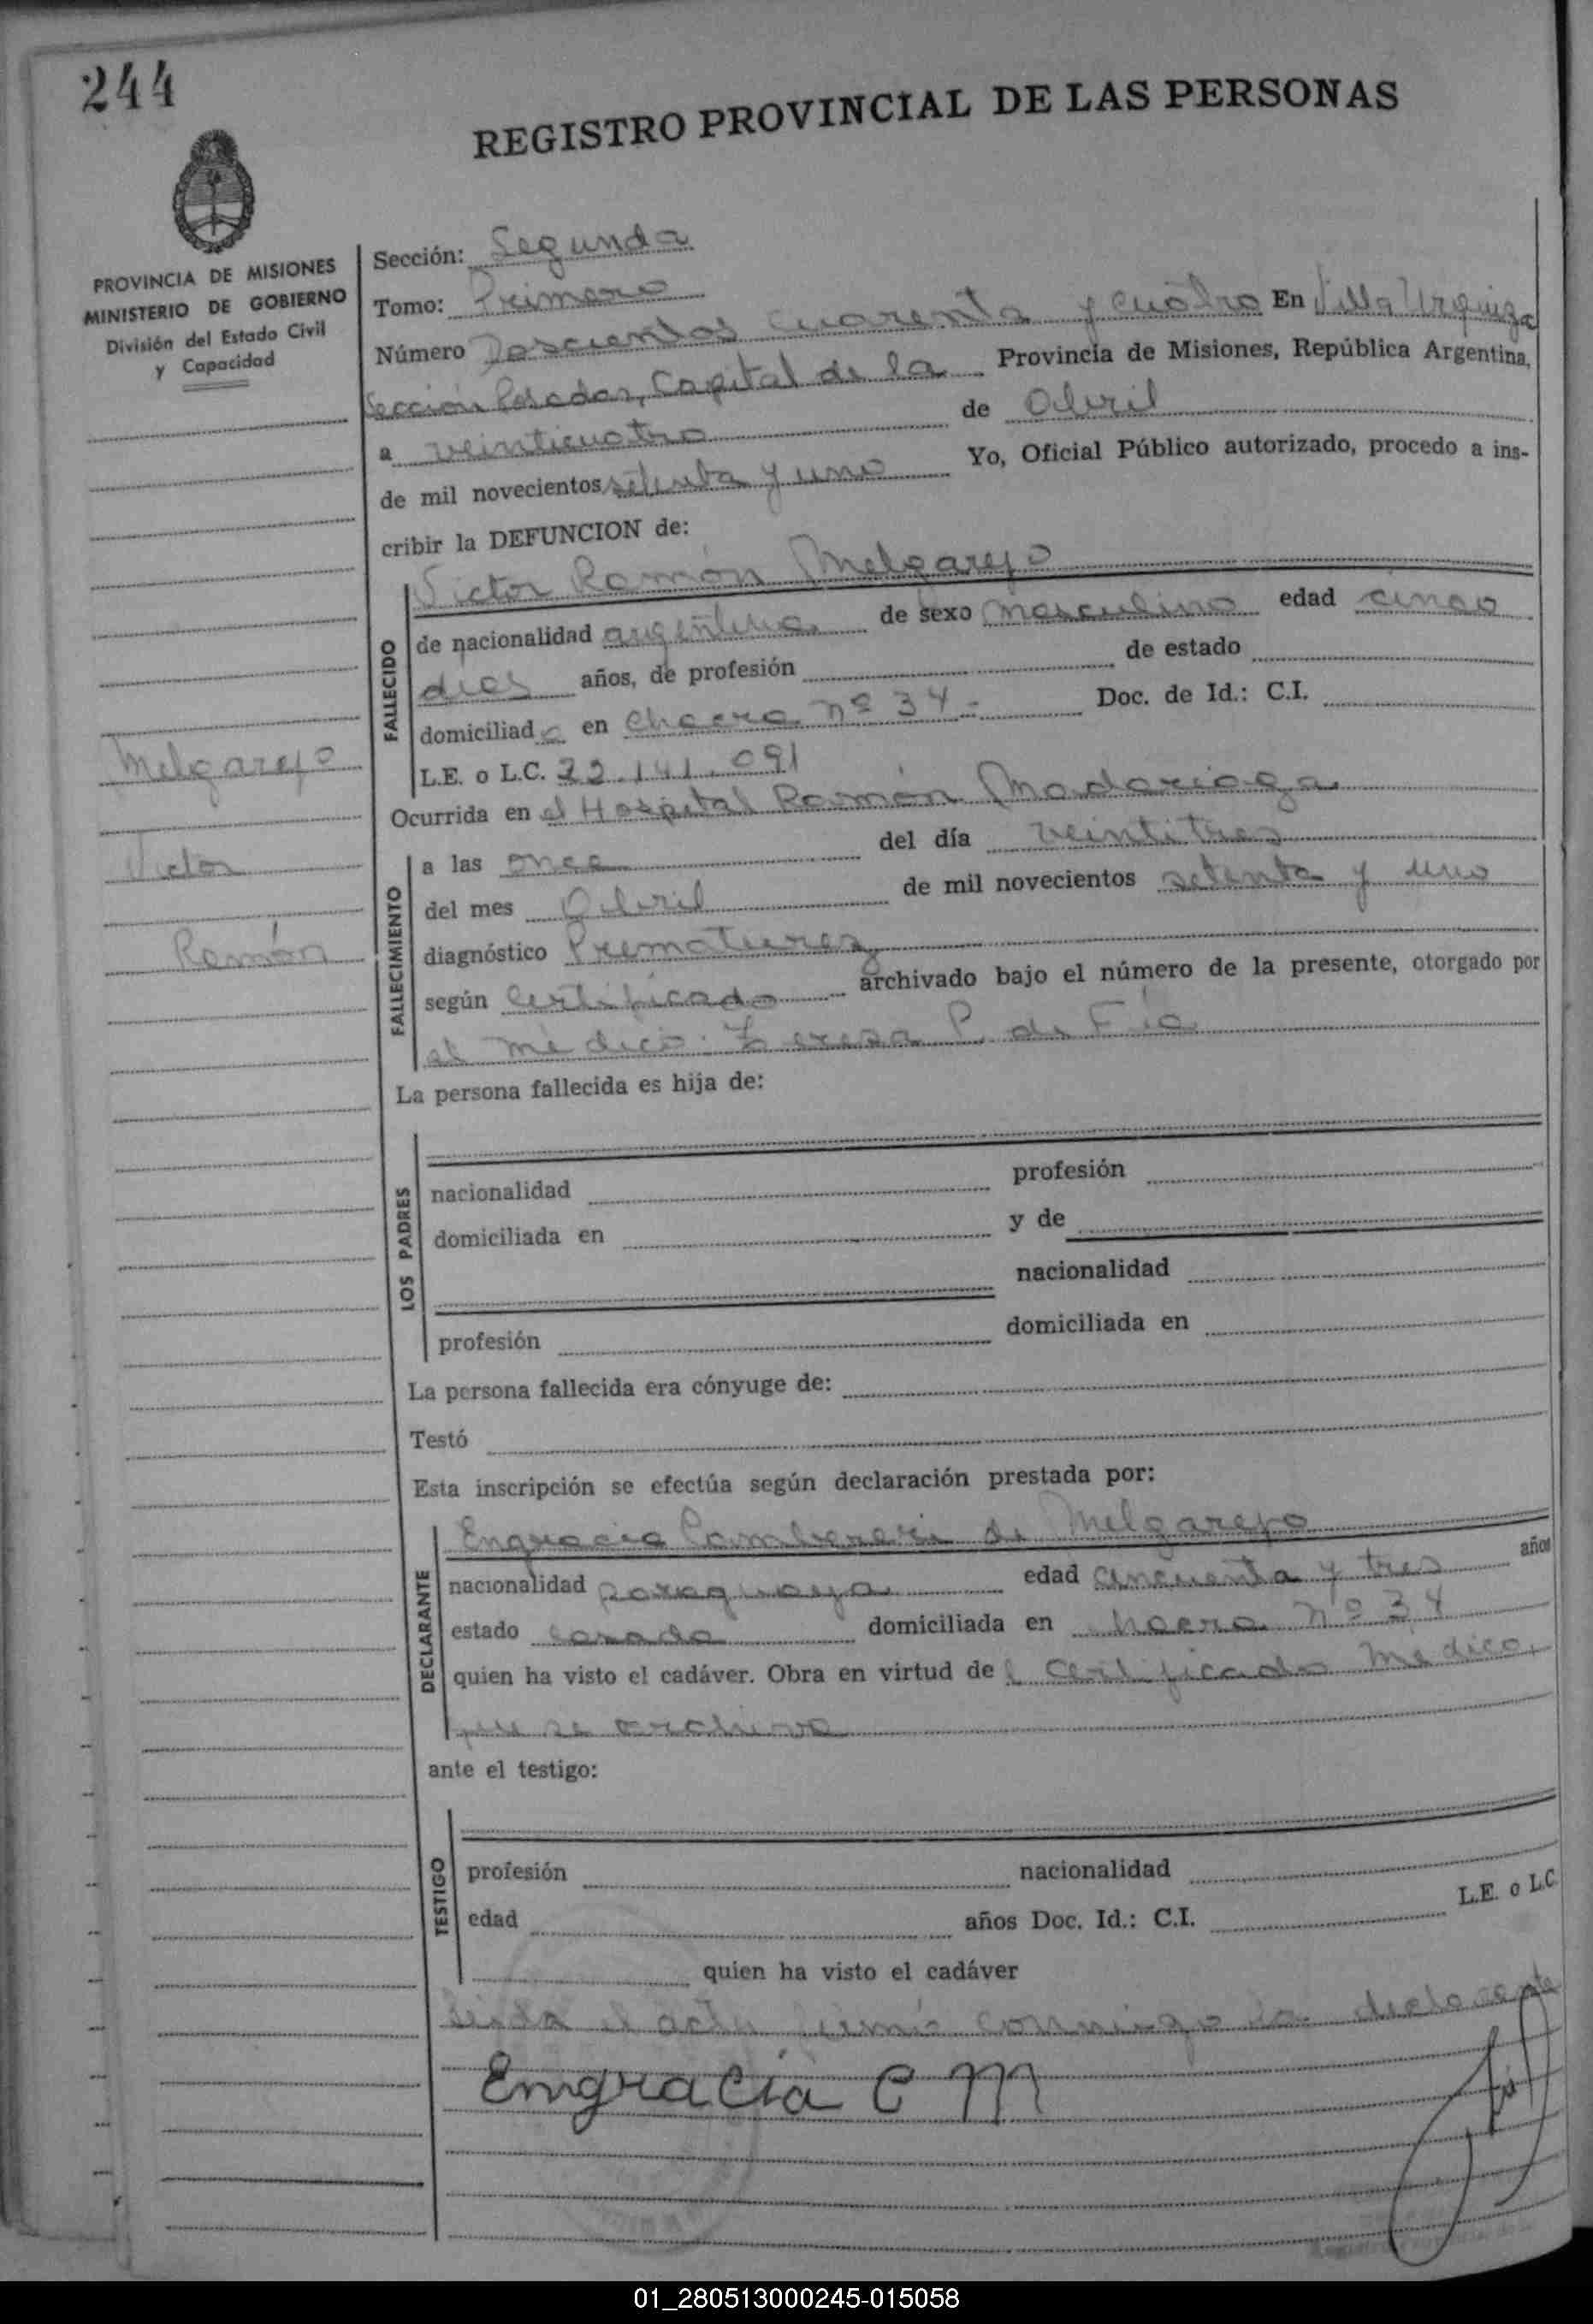 244
REGISTRO PROVINCIAL DE LAS PERSONAS
PROVINCIA DE MISIONES
MINISTERIO DE GOBIERNO
División del Estado Civil
y Capacidad
Sección: Segunda
Tomo: Primero
Número Doscientos cuarenta y cuatro En Villa Urquiza
Sección Posadas, Capital de la Provincia de Misiones, República Argentina,
a veinticuatro de Abril
de mil novecientos setenta y uno Yo, Oficial Público autorizado, procedo a ins-
cribir la DEFUNCION de:
FALLECIDO
Victor Ramón Melgarejo
de nacionalidad argentina de sexo masculino edad cinco
dias años, de profesión de estado
domiciliado en Chacra nº 34 - Doc. de Id.: C.I.
L.E. o L.C. 22.141.091
Melgarejo
Victor
Ramón
Ocurrida en el Hospital Ramón Madariaga
FALLECIMIENTO
a las once del día veintitres
del mes Abril de mil novecientos setenta y uno
diagnóstico Prematurez
según Certificado archivado bajo el número de la presente, otorgado por
el médico: Teresa P. de
La persona fallecida es hija de:
LOS PADRES
nacionalidad profesión
domiciliada en y de
nacionalidad
profesión domiciliada en
La persona fallecida era cónyuge de:
Testó
Esta inscripción se efectúa según declaración prestada por:
DECLARANTE
Engracia de Melgarejo
nacionalidad paraguaya edad cincuenta y tres años
estado casada domiciliada en chacra nº 34
quien ha visto el cadáver. Obra en virtud del Certificado Medico,
que se archiva
ante el testigo:
TESTIGO
profesión nacionalidad
edad años Doc. Id.: C.I. L.E. o L.C.
quien ha visto el cadáver
Leida el acta firmó conmigo la declarante
Emgracia C M
01_280513000245-015058